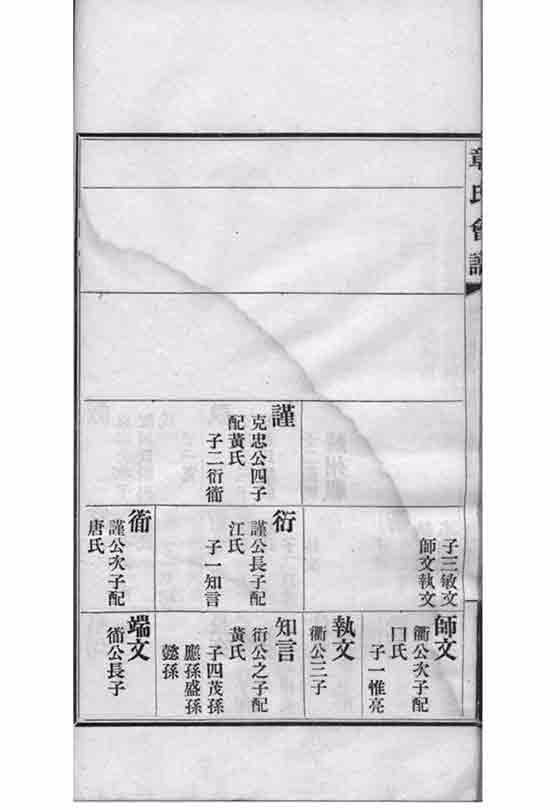 章氏會譜
謹
克忠公四子
配黃氏
子二衍衜
子三敏文
師文執文
衍
謹公長子配
江氏
子一知言
衜
謹公次子配
唐氏
師文
衢公次子配
囗氏
子一惟亮
執文
衢公三子
知言
衍公之子配
黃氏
子四茂孫
應孫盛孫
懿孫
端文
衜公長子